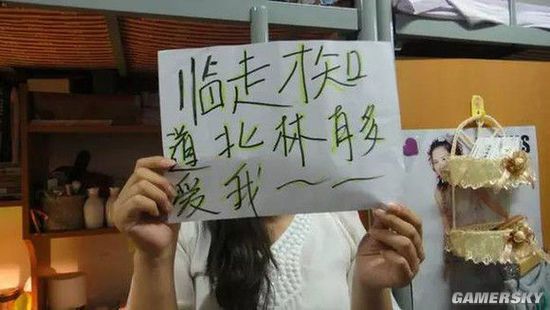 临走才知
道北林有多
爱我~~
GAMERSKY